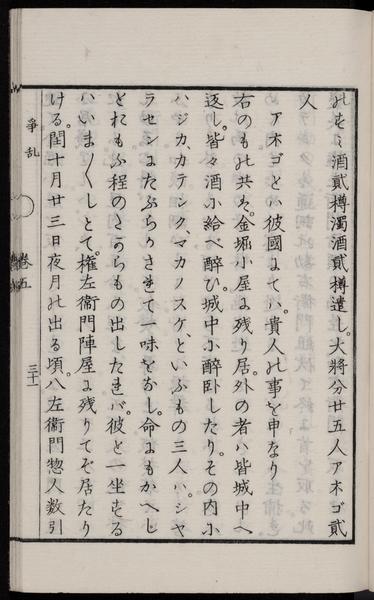 のすゝ酒貳樽濁酒貳樽遣し。大將分廿五人アネゴ貳
人
アネゴとハ彼國にてい。貴人の事を申なり
右のもの共ハ。金堀小屋に残り居。外の者ハ皆城中へ
返し。皆々酒に給べ醉ひ城中に醉卧したり。その内に
ハジカ、カテンク、マカノスケ、といふもの三人ハ。シヤ
ラセンにたぶらかさきて一味をなし。命にもかへし
とれもふ程のたからもの出したきバ。彼と一坐する
ハいま〳〵しとて。権左衞門陣屋に残りてぞ居たり
ける。閏十月廿三日夜月の出る頃。八左衞門惣人数引
爭乱
卷五
三十一